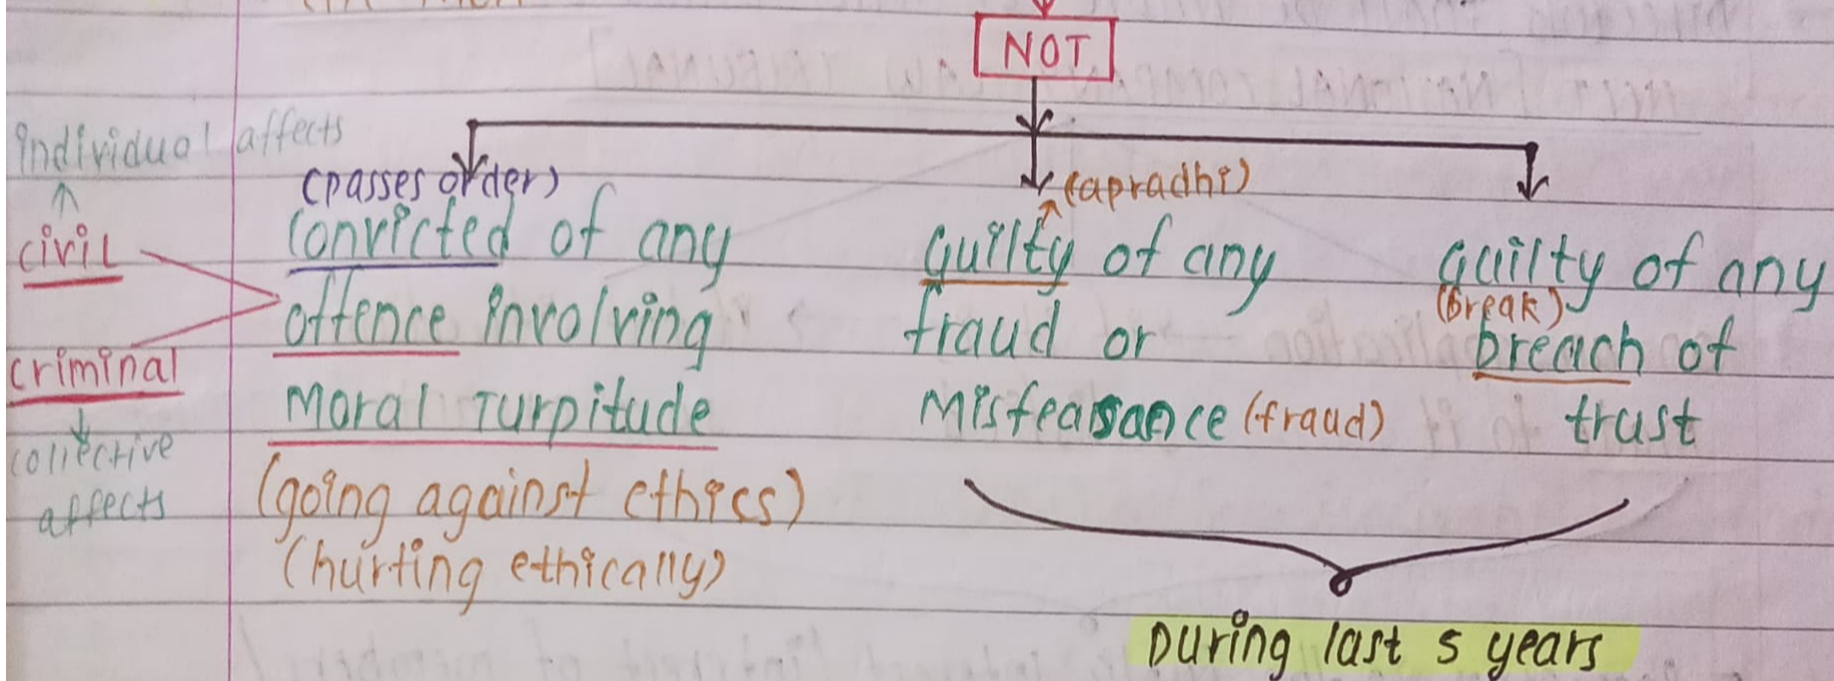 NOT
individual affects
↑
civil
criminal
↓
collective
affects
(passes order)
Convicted of any
offence involving
Moral Turpitude
(going against ethics)
(hurting ethically)
(apradhi)
Guilty of any
fraud or
Misfeasance (fraud)
Guilty of any
(break)
breach of
trust
During last 5 years